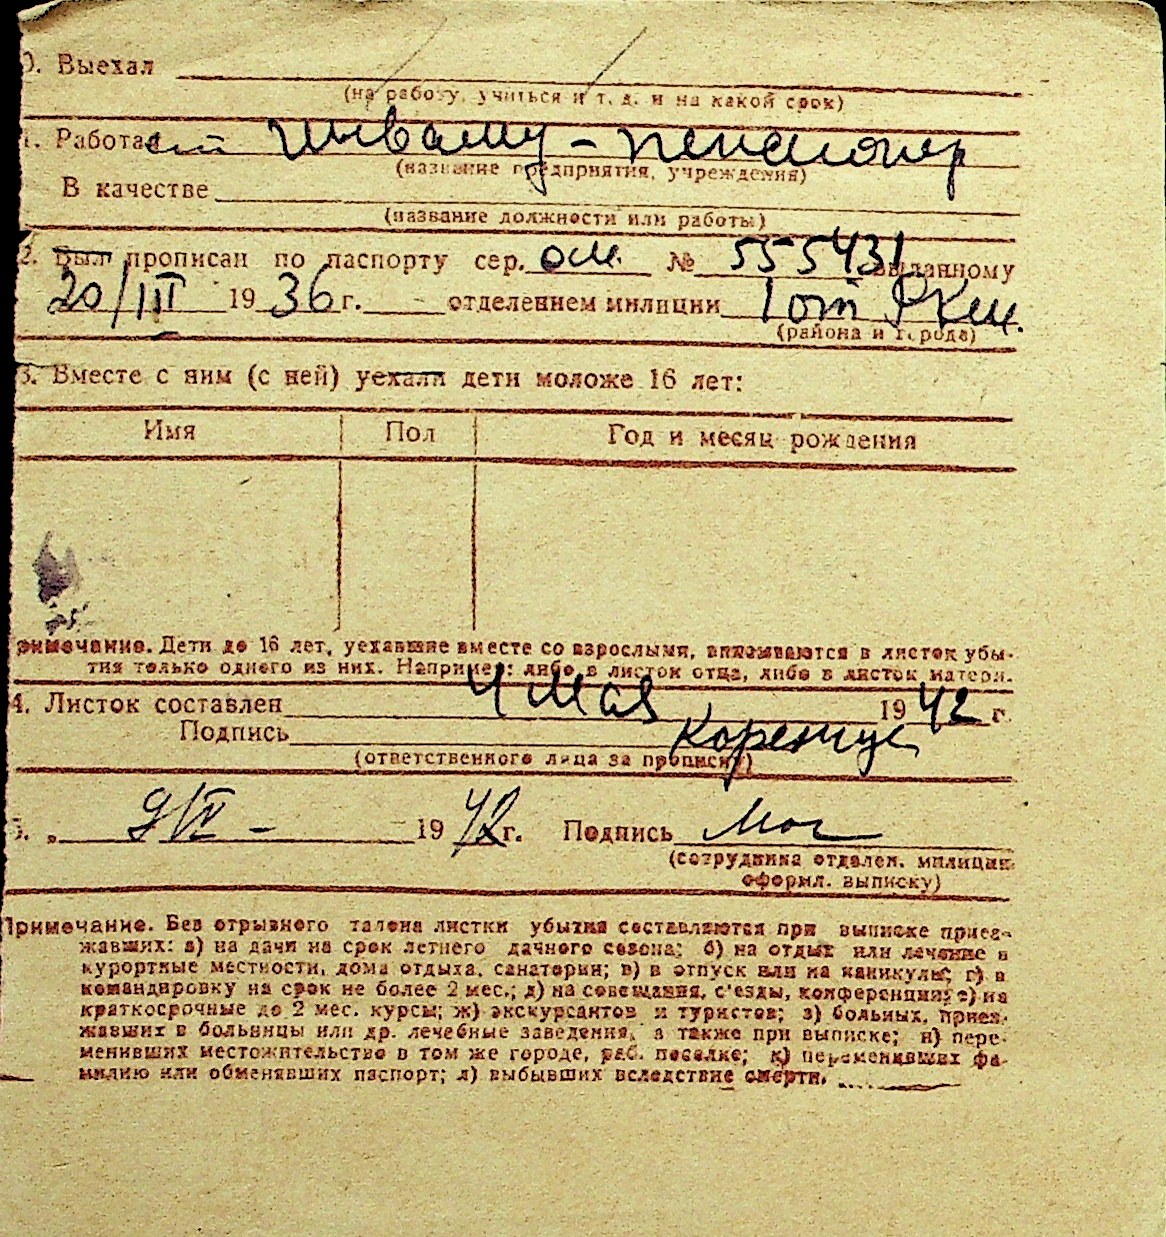 0. Выехал
(на работу, учиться и т. д. и на какой срок)
1. Работает инвалид - пенсионер
(название предприятия, учреждения)
В качестве
(название должности или работы)
2. Был прописан по паспорту сер. № 555431 выданному
20/III 1936 г. - отделением милиции 1 от РКМ.
(района и города)
3. Вместе с ним (с ней) уехали дети моложе 16 лет:
Имя Пол Год и месяц рождения
Примечание. Дети до 16 лет, уехавшие вместе со взрослыми, вписываются в листок убы-
тия только одного из них. Например: либо в листок отца, либо в листок матери.
4. Листок составлен 4 мая 1942 г.
Подпись
(ответственного лица за прописку)
5. „ 9/V - 1942 г. Подпись
(сотрудника отделен. милиции
оформл. выписку)
Примечание. Без отрывного талона листки убытия составляются при выписке приез-
жавших: а) на дачи на срок летнего дачного сезона; б) на отдых или лечение в
курортные местности, дома отдыха, санатории; в) в отпуск или на каникулы; г) в
командировку на срок не более 2 мес.; д) на совещания, с'езды, конференции; е) на
краткосрочные до 2 мес. курсы; ж) экскурсантов и туристов; з) больных, приез-
жавших в больницы или др. лечебные заведения, а также при выписке; и) пере-
менивших местожительство в том же городе, раб. поселке; к) переменивших фа-
милию или обменявших паспорт; л) выбывших вследствие смерти.